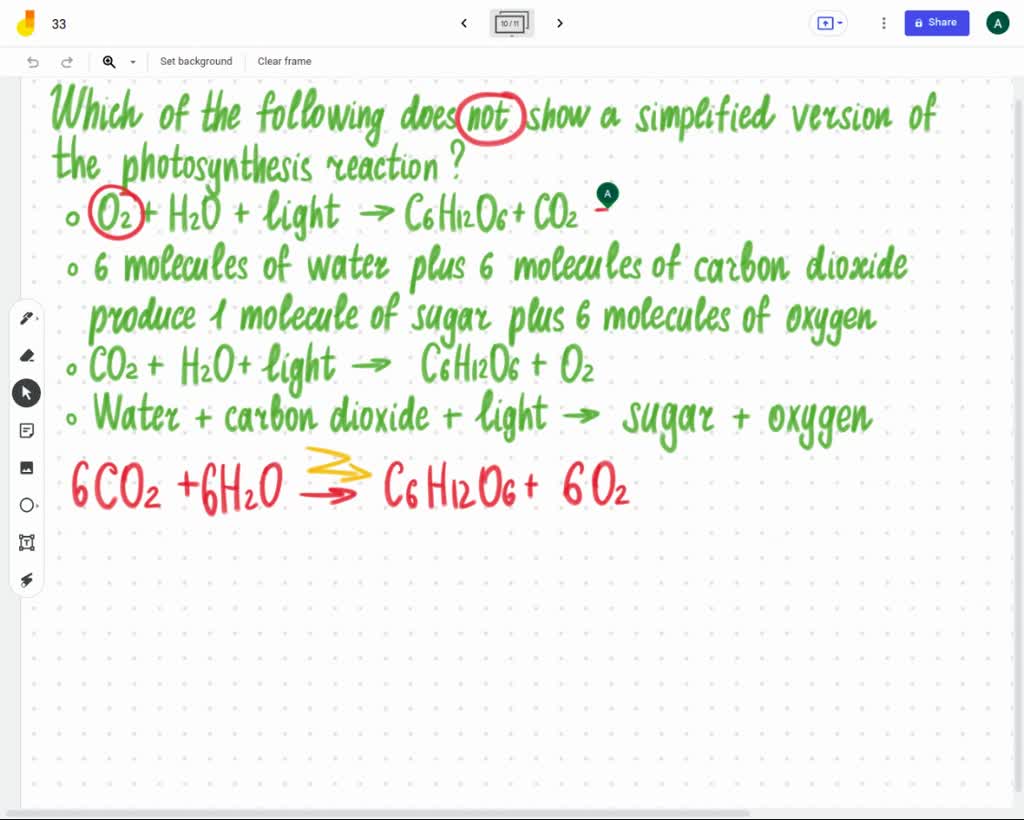 33
10 / 11
Share
A
Set background
Clear frame
Which of the following does not show a simplified version of
the photosynthesis reaction?
O2 + H2O + light → C6H12O6 + CO2
A
6 molecules of water plus 6 molecules of carbon dioxide
produce 1 molecule of sugar plus 6 molecules of oxygen
CO2 + H2O + light → C6H12O6 + O2
Water + carbon dioxide + light → sugar + oxygen
6CO2 + 6H2O → C6H12O6 + 6O2